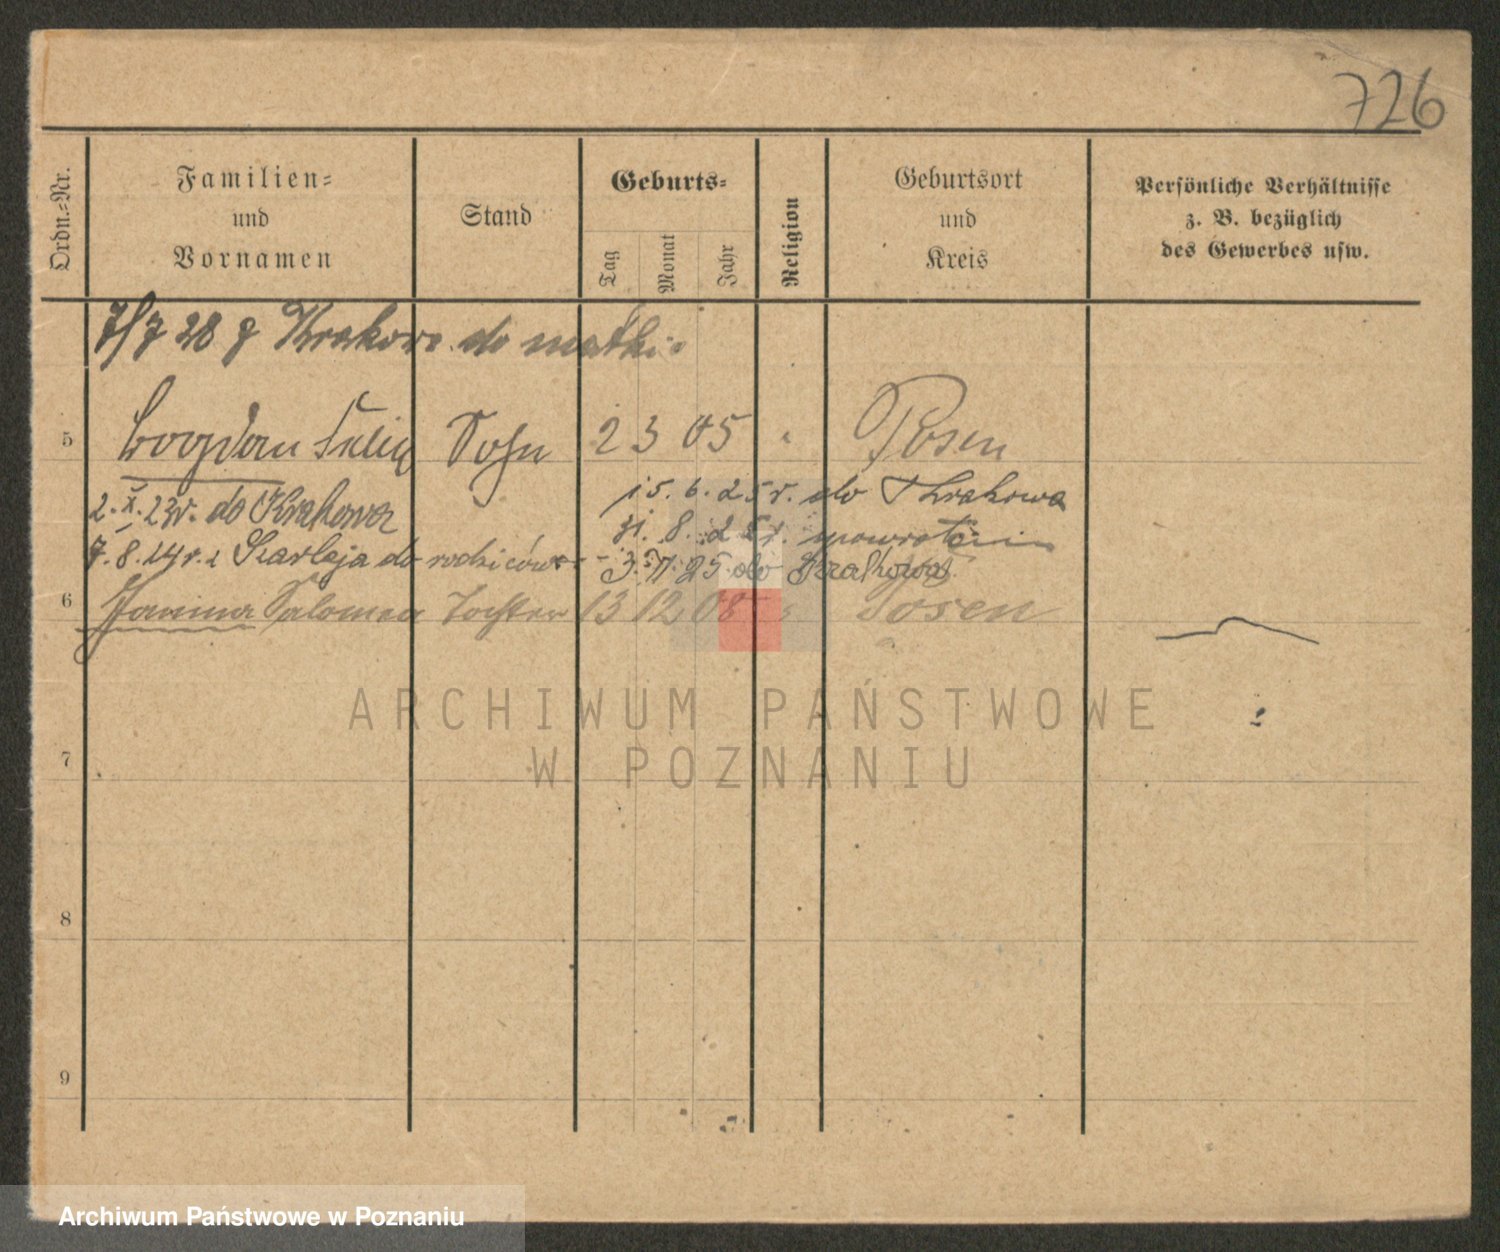 726
Ordn.-Nr.
Familien-
und
Vornamen
Stand
Geburts-
Tag
Monat
Jahr
Religion
Geburtsort
und
Kreis
Persönliche Verhältnisse
z. B. bezüglich
des Gewerbes usw.
7/7 28 z Krakowa do matki.
5 Bogdan Sohn 2 3 05 " Posen
2.X.23r. do Krakowa
15. 6. 25 r. do Krakowa
31. 8. 25 r. powrócił
7. 8. 24 r. z do rodziców
3. 25 do Krakowa
6 Janina Salomea Tochter 13 12 08 " Posen
ARCHIWUM PAŃSTWOWE
W POZNANIU
7
8
9
Archiwum Państwowe w Poznaniu